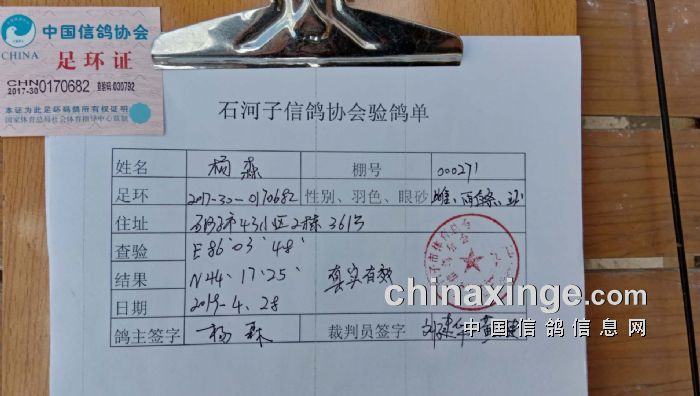 中国信鸽协会
CHINA
足环证
CHN
2017-30 0170682 查验码:030792
本证为此足环码鸽所有权证明
国家体育总局社会体育指导中心监制
石河子信鸽协会验鸽单
姓名 杨森 棚号 000271
足环 2017-30-0170682 性别、羽色、眼砂 雌、雨白条、
住址 市43小区2栋361号
查验 E86°03′48′
结果 N44°17′25′ 真实有效
日期 2019.4.28
鸽主签字 杨森 裁判员签字
chinaxinge.com
中国信鸽信息网